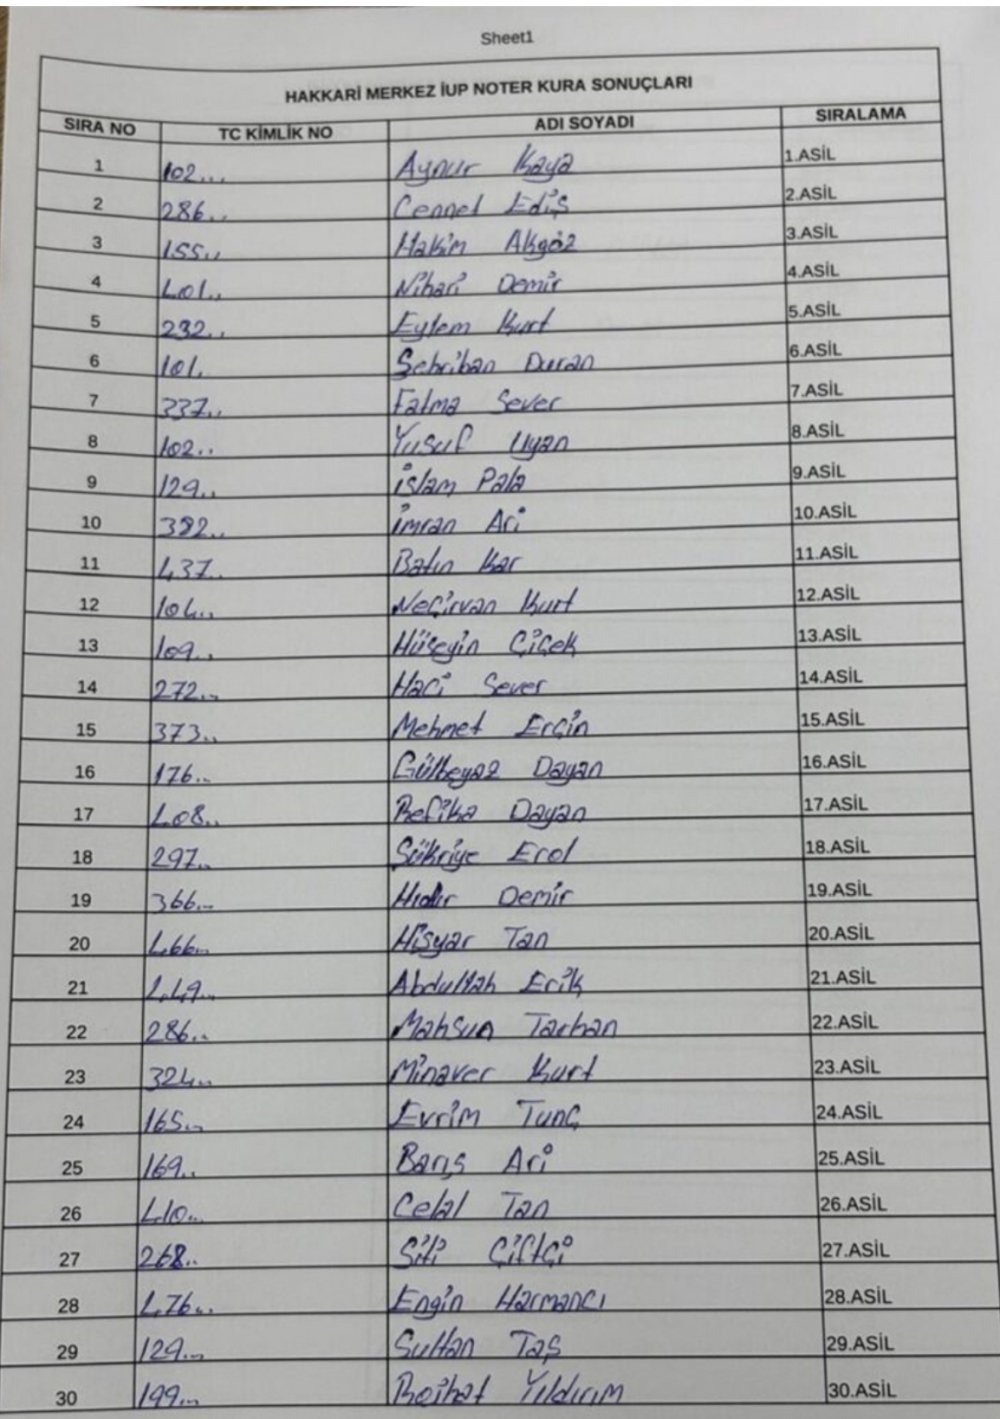 Sheet1
HAKKARİ MERKEZ İUP NOTER KURA SONUÇLARI
SIRA NO TC KİMLİK NO ADI SOYADI SIRALAMA
1 102... Aynur Kaya 1.ASİL
2 286.. Cennet Ediş 2.ASİL
3 155.. Hakim Akgöz 3.ASİL
4 401.. Nihari Demir 4.ASİL
5 232.. Eylem Kurt 5.ASİL
6 101. Şehriban Duran 6.ASİL
7 337.. Fatma Sever 7.ASİL
8 102.. Yusuf Uyan 8.ASİL
9 129.. İslam Pala 9.ASİL
10 382.. İmran Ari 10.ASİL
11 437.. Batın Kar 11.ASİL
12 104... Neçirvan Kurt 12.ASİL
13 109.. Hüseyin Çiçek 13.ASİL
14 272... Haci Sever 14.ASİL
15 373.. Mehmet Erçin 15.ASİL
16 176.. Gülbeyaz Dayan 16.ASİL
17 408.. Refika Dayan 17.ASİL
18 297.. Şükriye Erol 18.ASİL
19 366... Hıdır Demir 19.ASİL
20 466... Hişyar Tan 20.ASİL
21 449... Abdullah Erik 21.ASİL
22 286.. Mahsun Tarhan 22.ASİL
23 324... Minaver Kurt 23.ASİL
24 165... Evrim Tunç 24.ASİL
25 169.. Barış Ari 25.ASİL
26 410... Celal Tan 26.ASİL
27 268.. Siti Çiftçi 27.ASİL
28 476... Engin Harmancı 28.ASİL
29 129... Sultan Taş 29.ASİL
30 199... Rojhat Yıldırım 30.ASİL